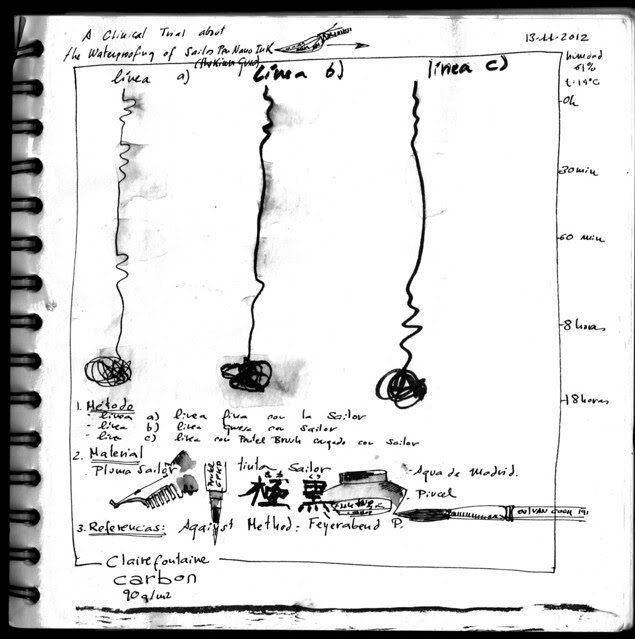 A Clinical Trial about
the Waterproofing of Sailor Nano Ink
13-11-2012
humedad
61%
t: 19ºC
línea a)
línea b)
línea c)
0h
30 min
60 min
8 horas
18 horas
1. Método
- línea a) línea fina con la Sailor
- línea b) línea gruesa con Sailor
- línea c) línea con Pentel Brush cargado con Sailor
2. Material
Pluma Sailor
tinta Sailor
極黒
- Agua de Madrid.
Pincel
VAN GOGH
3. Referencias: Against Method: Feyerabend P.
Clairefontaine
carbon
90 g/m2